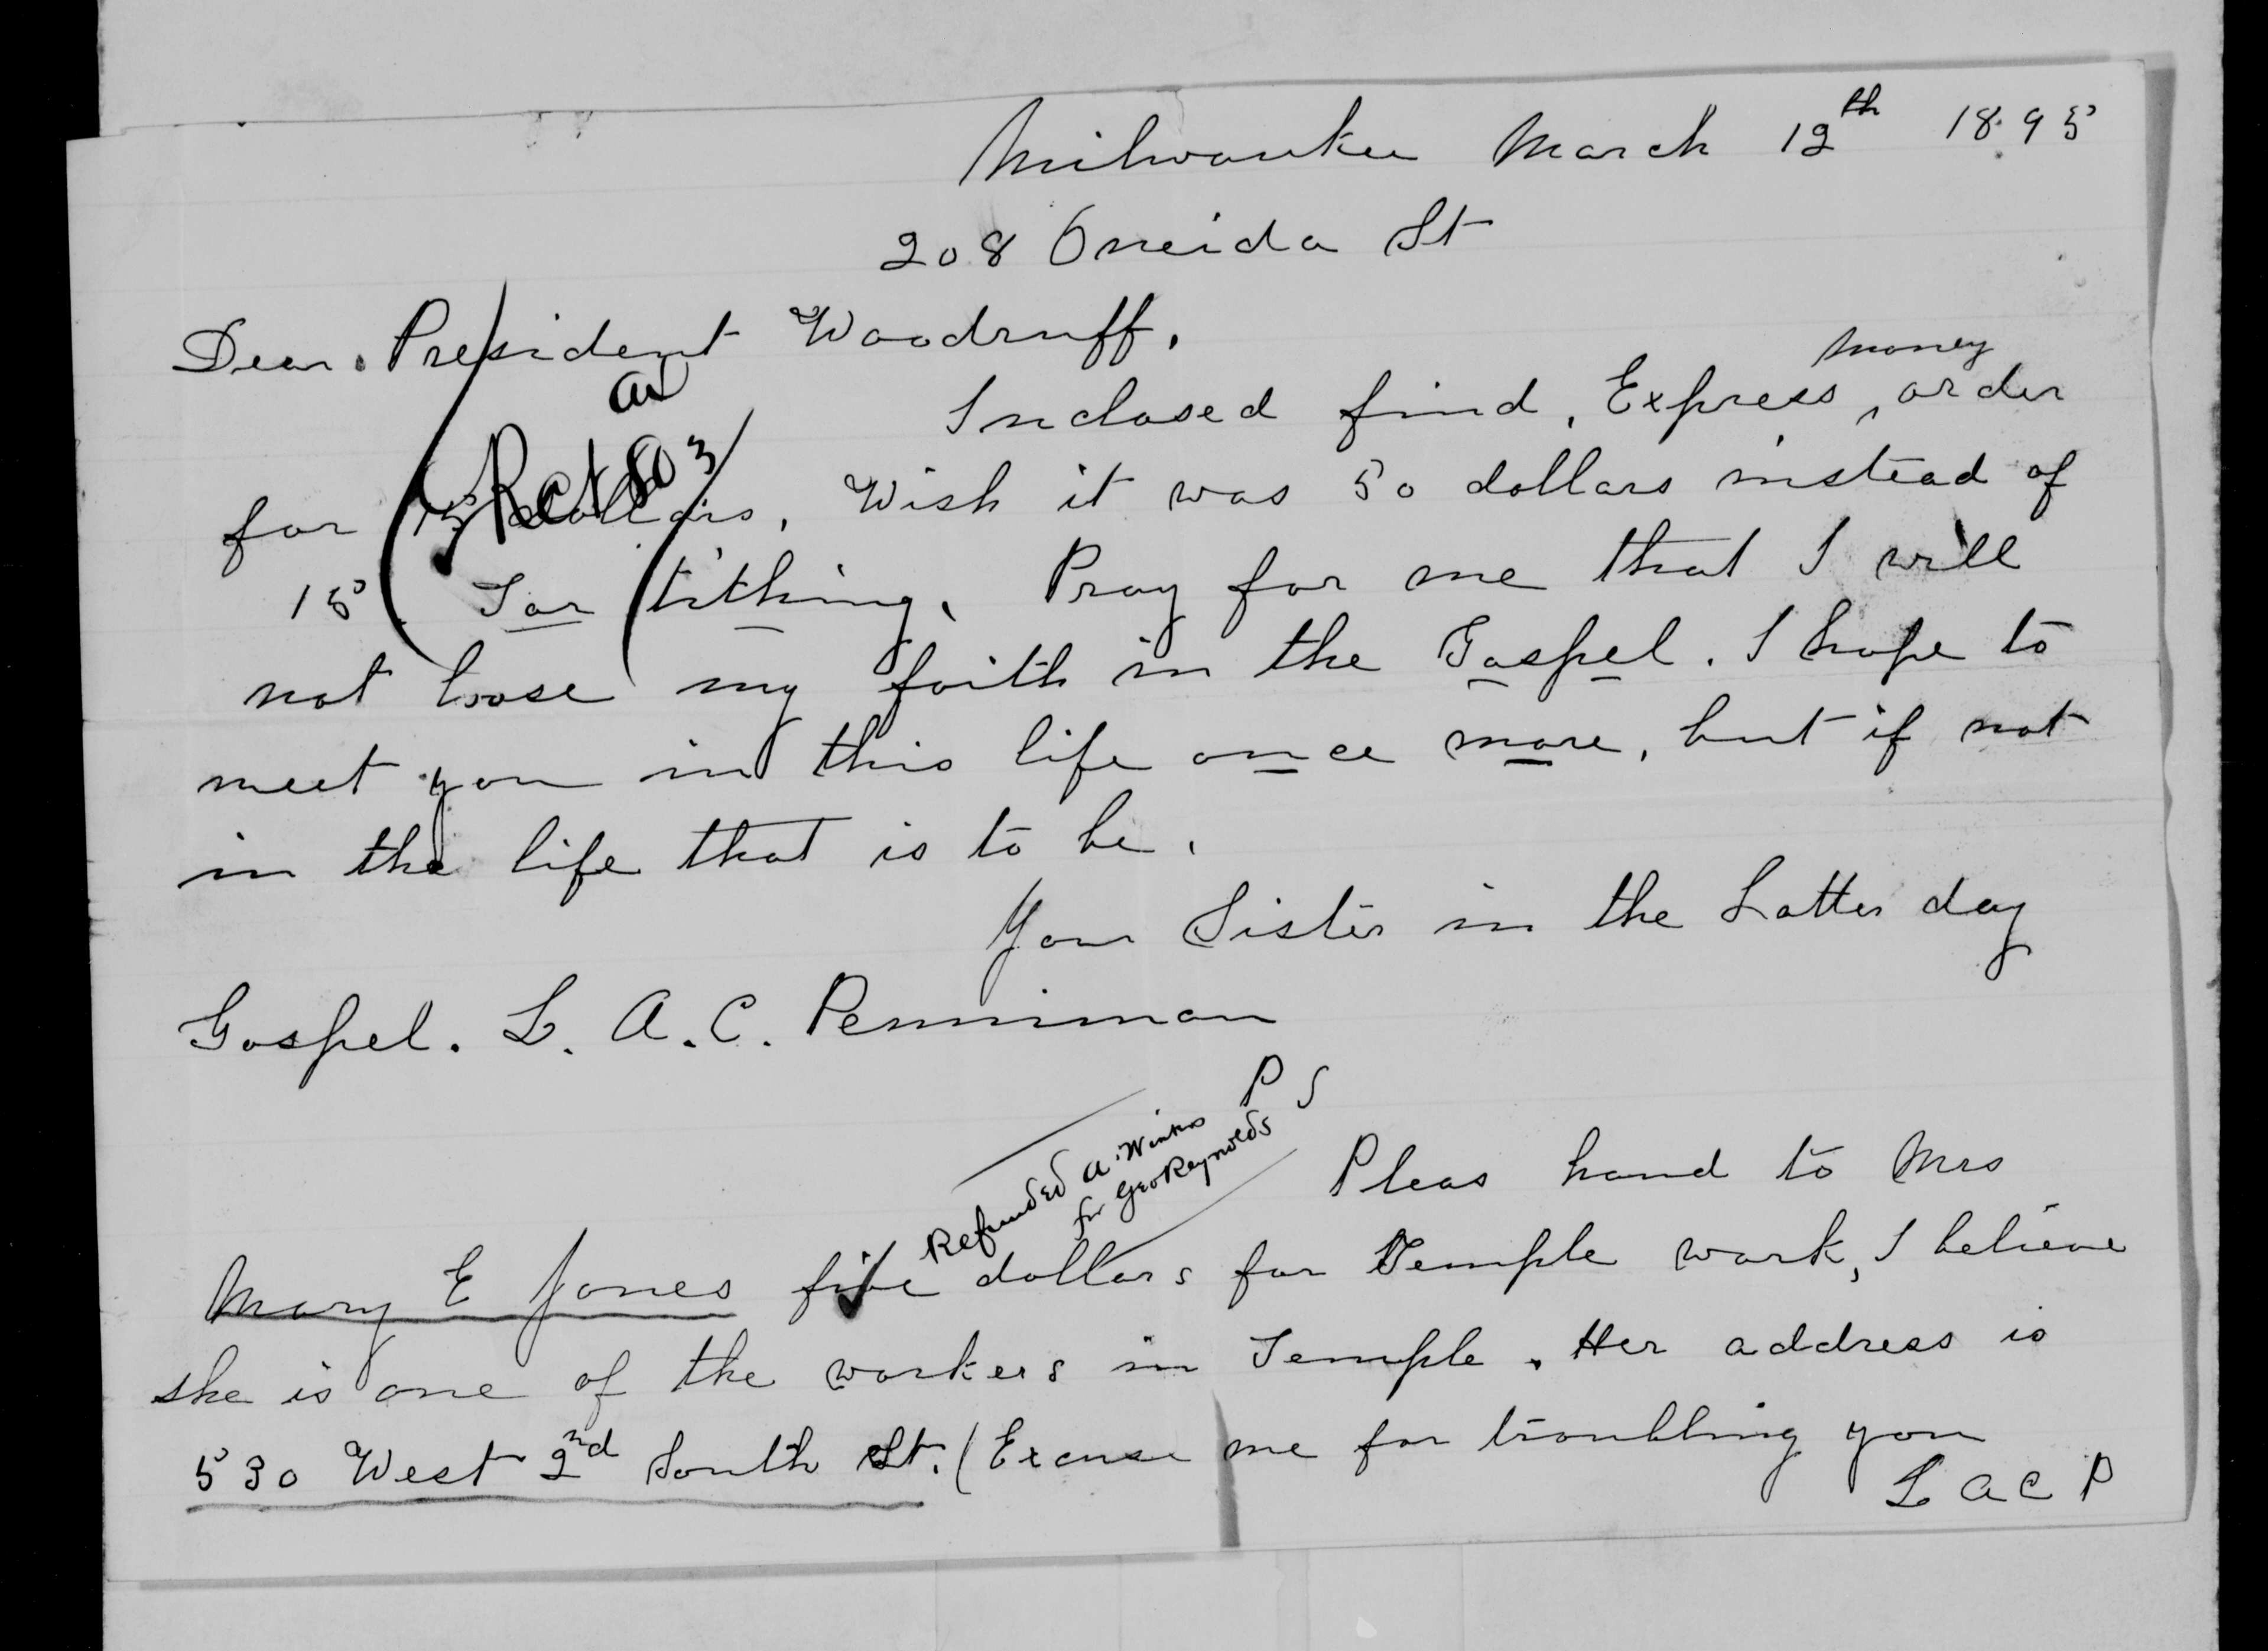 Milwaukee March 12th 1895
208 Oneida St
Dear President Woodruff,
Inclosed find, Express money order
for 15 dollars, Wish it was 50 dollars instead of
15. For tithing, Pray for me that I will
not loose my faith in the Gospel. I hope to
meet you in this life once more, but if not
in the life that is to be.
Your Sister in the Latter day
Gospel. L. A. C. Penniman
P S
Refunded A. Winter
for Geo Reynolds
Pleas hand to Mrs
Mary E Jones five dollars for Temple work, I believe
she is one of the workers in Temple. Her address is
530 West 2nd South St. (Excuse me for troubling you
L A C P